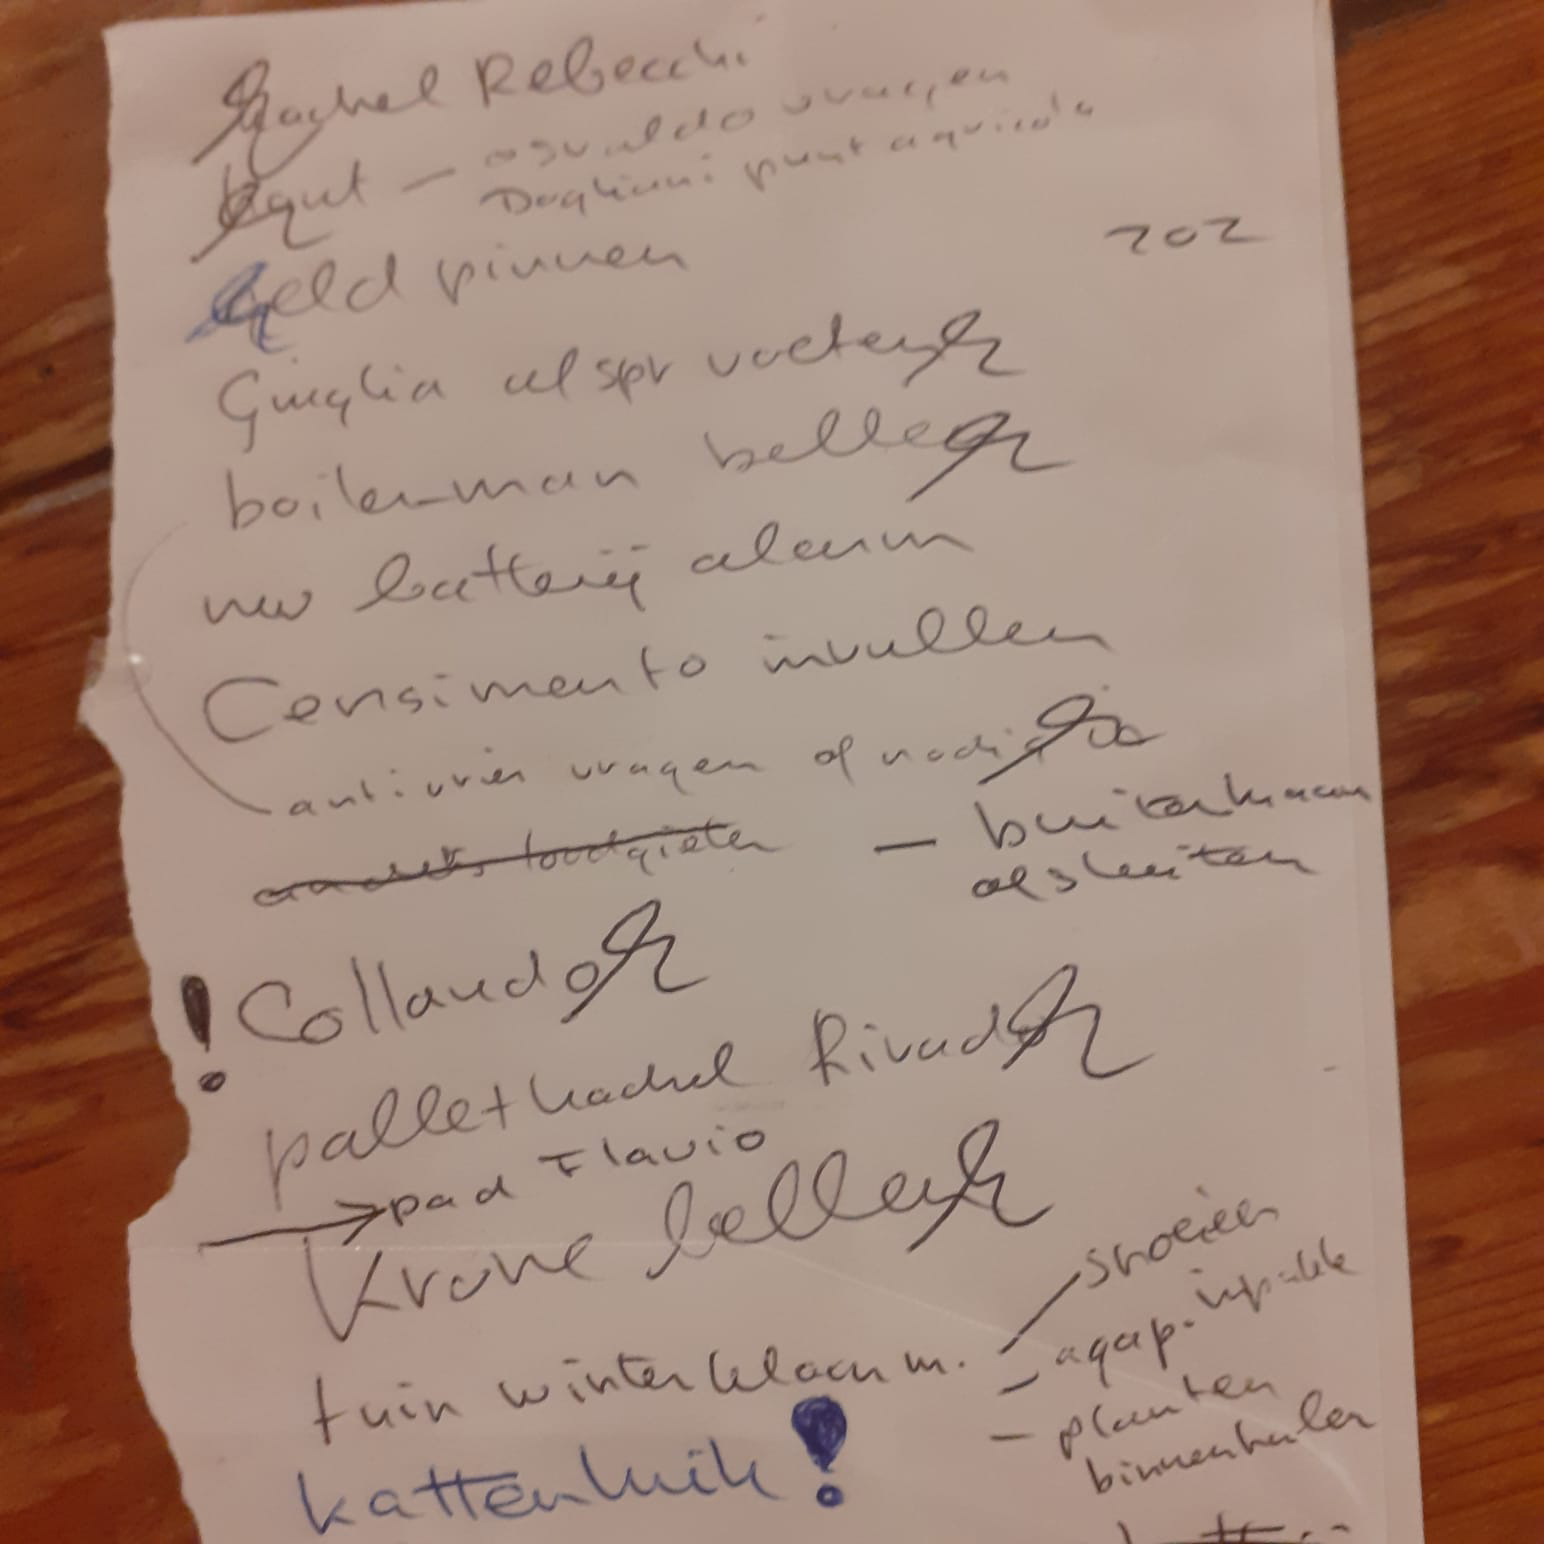 Rachel Rebecchi
- osvaldo vragen
Dogliani punt agricola
Geld pinnen
202
Giuglia afspr voeten
boilerman bellen
nw batterij alarm
Censimento invullen
antivries vragen of nodig is
loodgieter
- buitenkraan
afsluiten
! Collaudo
pallet kachel Rivado
→ pad Flavio
Krone bellen
tuin winterklaar m.
snoeien
- agap. inpakk
- planten
binnenhalen
kattenluik!